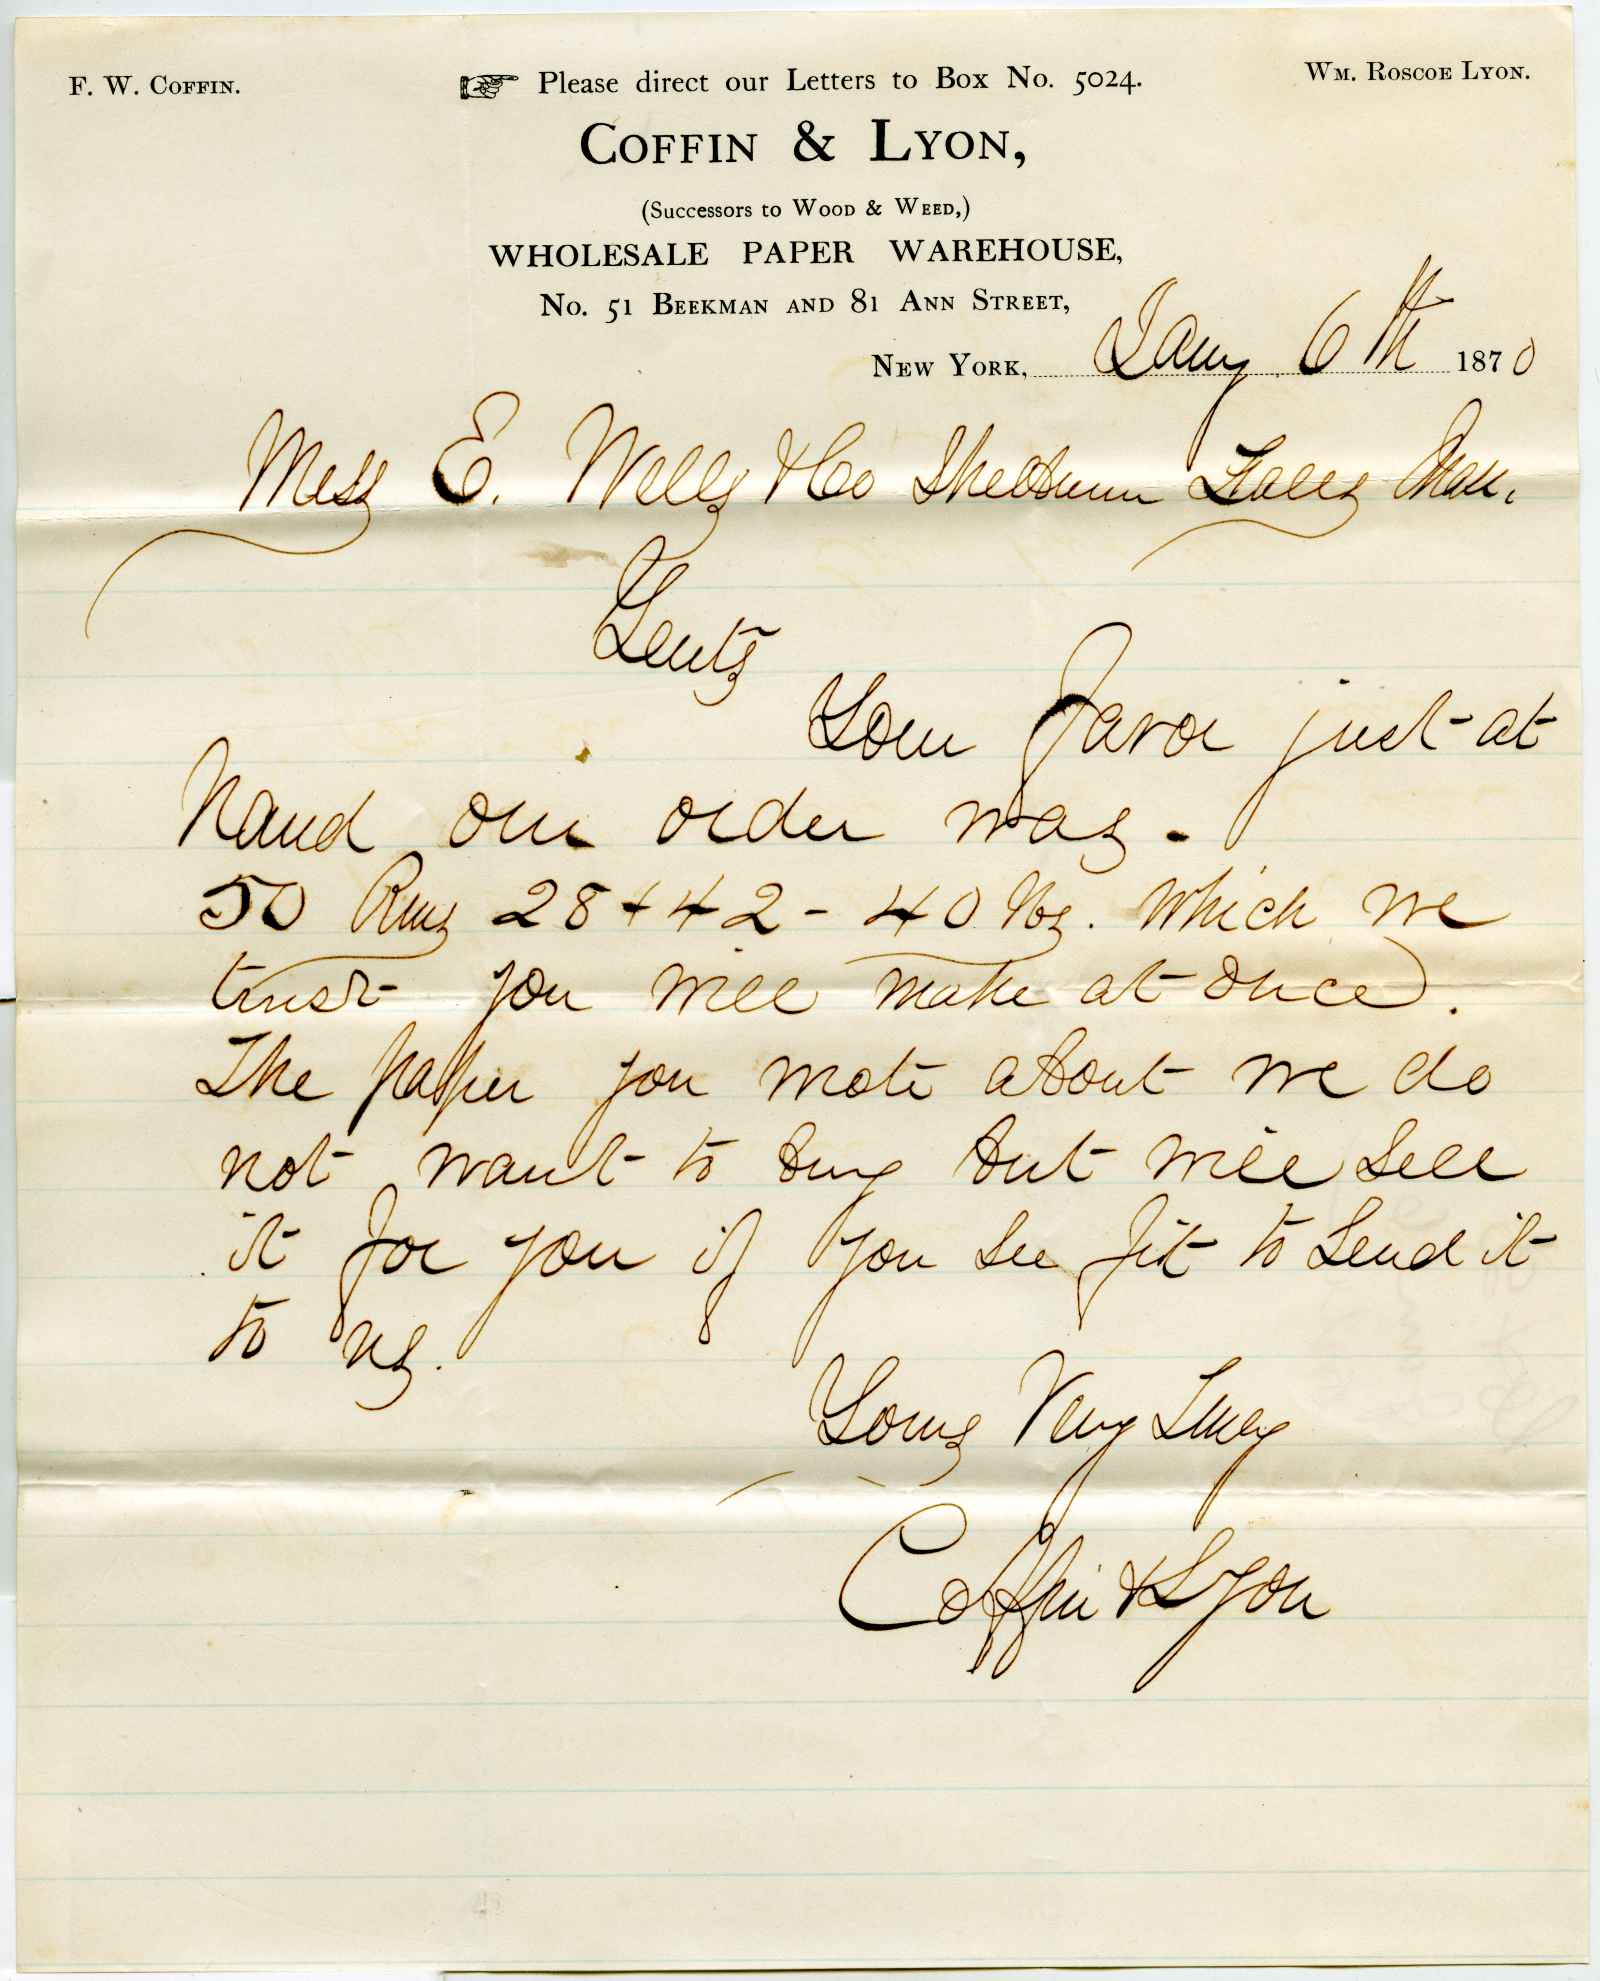 F. W. Coffin.
Please direct our Letters to Box No. 5024.
Wm. Roscoe Lyon.
Coffin & Lyon,
(Successors to Wood & Weed,)
WHOLESALE PAPER WAREHOUSE,
No. 51 Beekman and 81 Ann Street,
New York, Jany 6th 1870
Mess E. Wells & Co Shelburn Falls Mass.
Gents
Your favor just at
hand our order was.
50 Rms 28 + 42 - 40 lbs. which we
trust you will make at once.
The paper you wrote about we do
not want to buy but will sell
it for you if you see fit to send it
to us.
Yours Very Truly
Coffin & Lyon